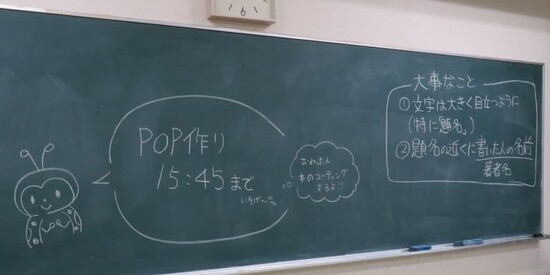 6
POP作り
15:45まで
いそげ〜
おわったら
本のコーティング
するよ!!
大事なこと
①文字は大きく目立つように
(特に題名」)
②題名の近くに書いた人の名前
著者名